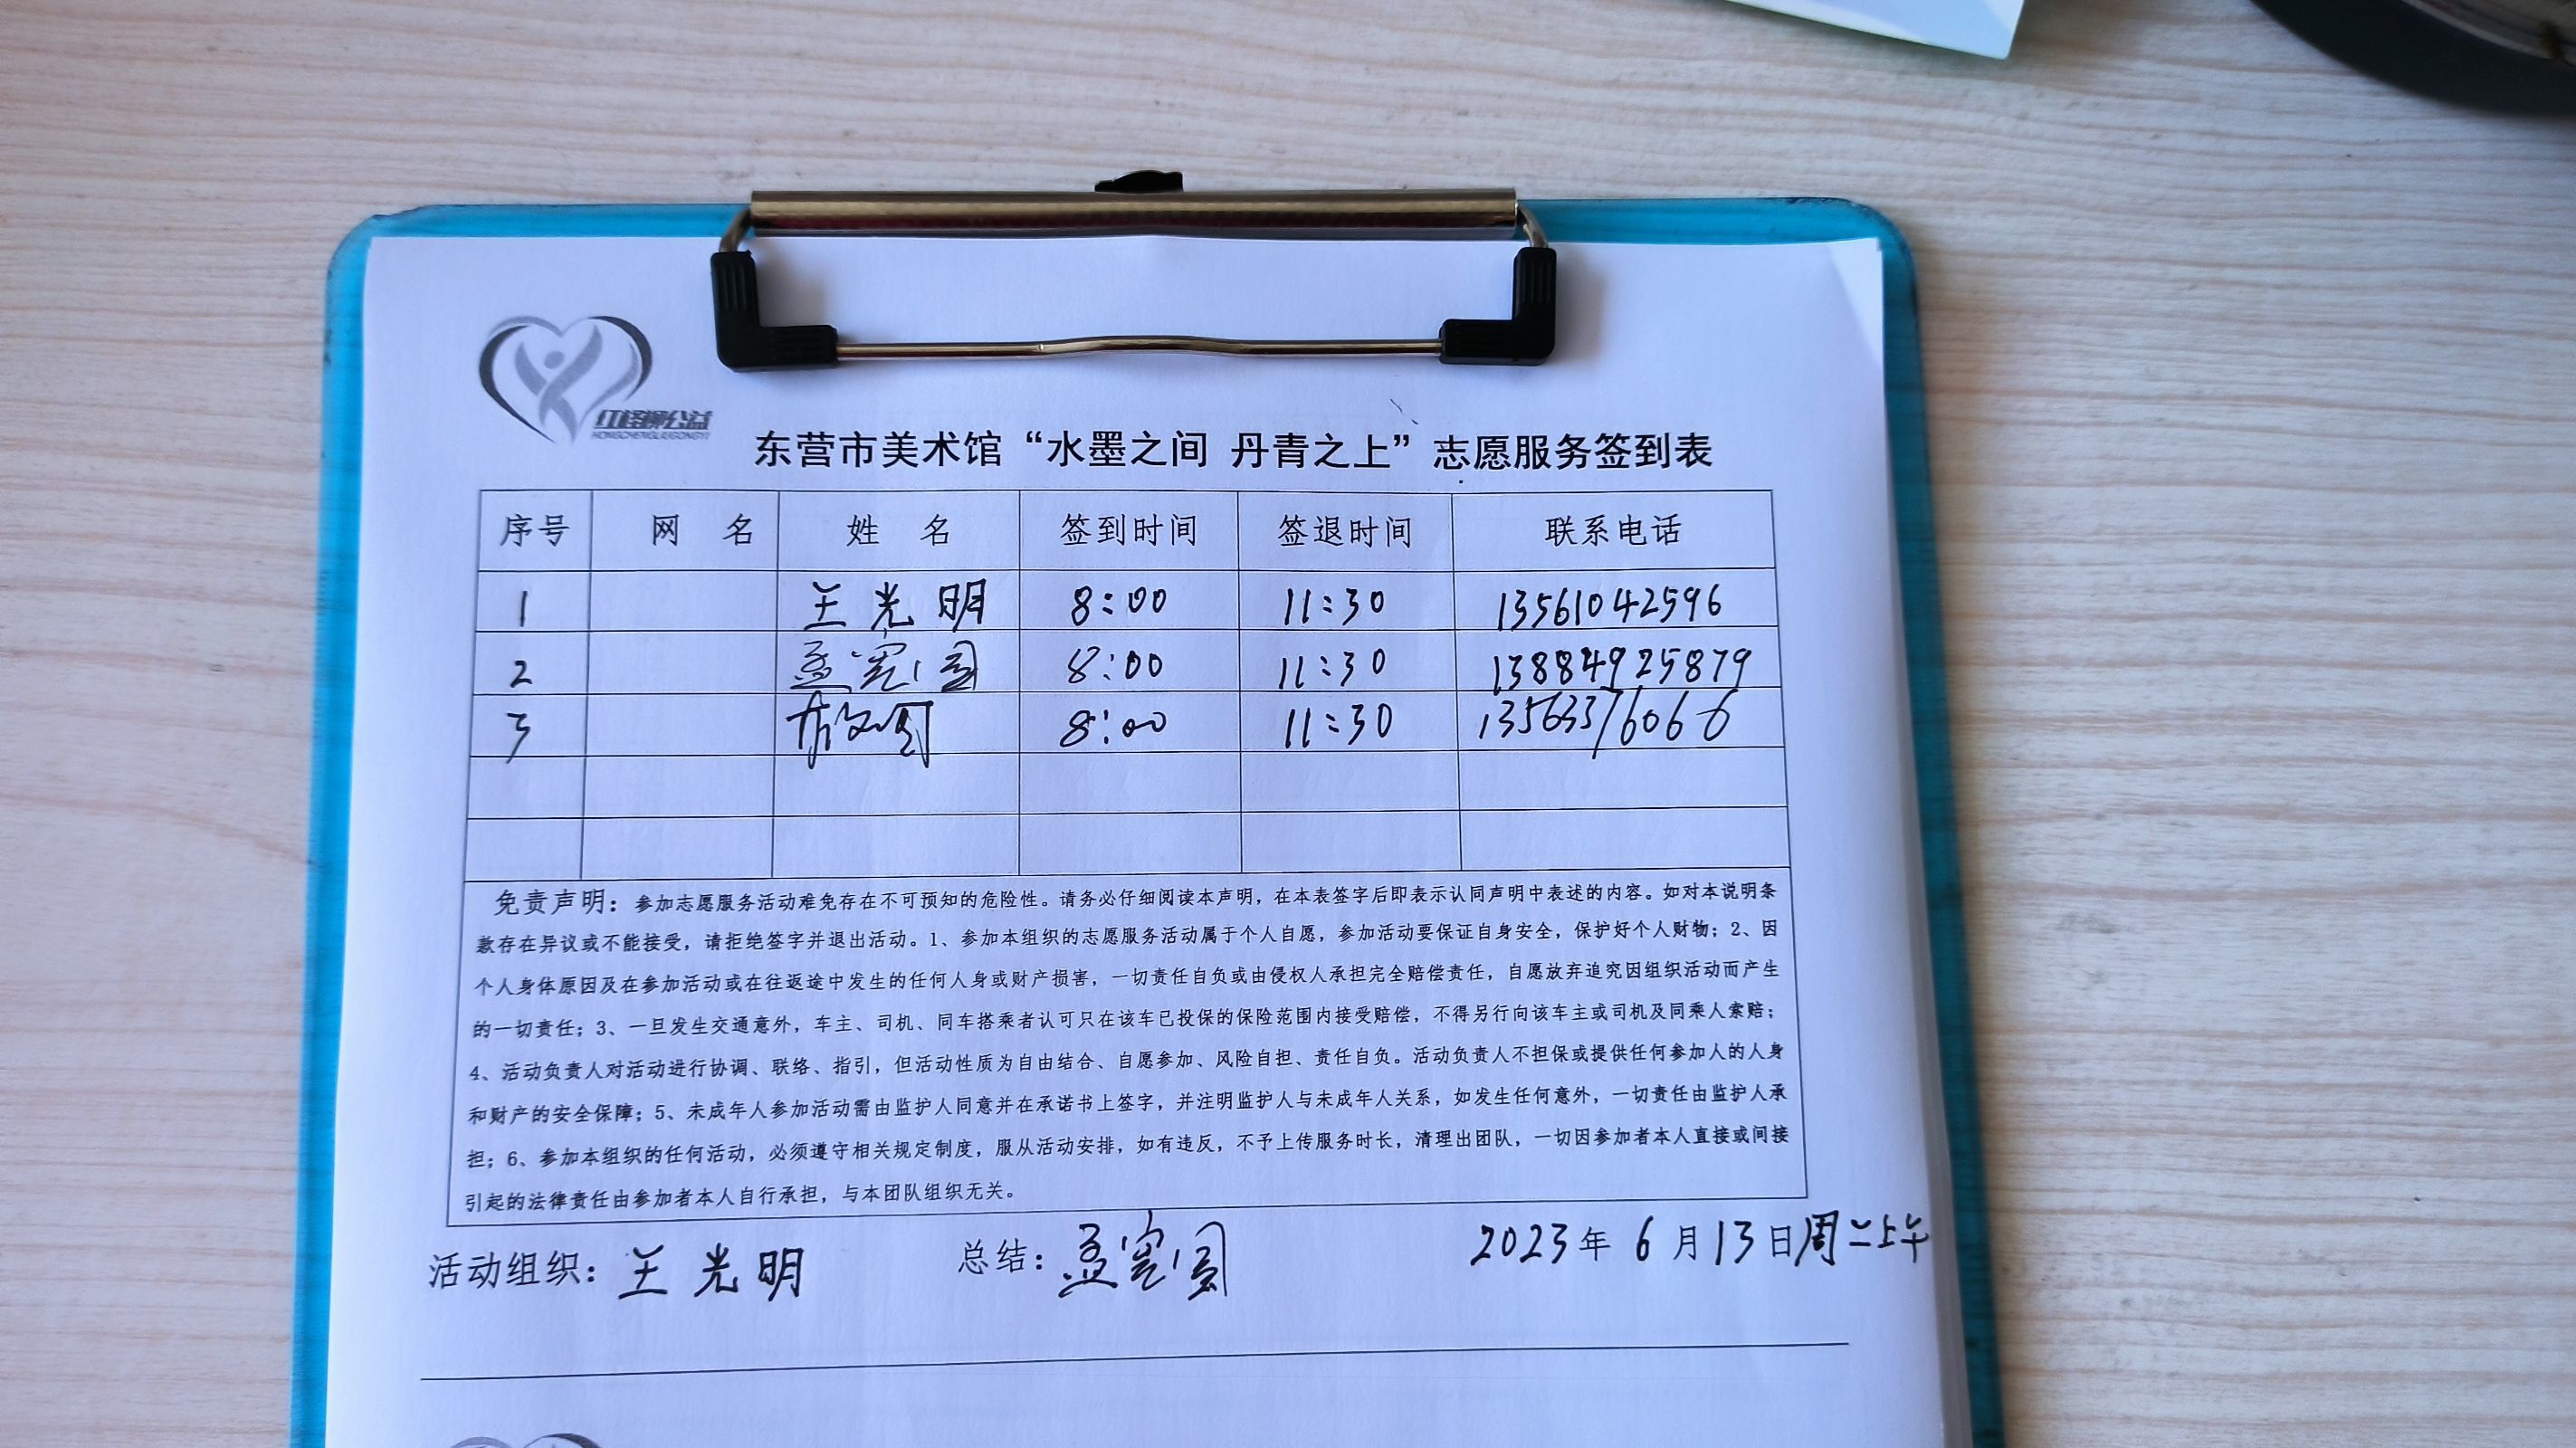 红柽柳公益
HONGCHENGLIUGONGYI
东营市美术馆“水墨之间 丹青之上”志愿服务签到表
序号 网 名 姓 名 签到时间 签退时间 联系电话
1 王光明 8:00 11:30 13561042596
2 孟宪国 8:00 11:30 13884925879
3 8:00 11:30 13563376066
免责声明：参加志愿服务活动难免存在不可预知的危险性。请务必仔细阅读本声明，在本表签字后即表示认同声明中表述的内容。如对本说明条
款存在异议或不能接受，请拒绝签字并退出活动。1、参加本组织的志愿服务活动属于个人自愿，参加活动要保证自身安全，保护好个人财物；2、因
个人身体原因及在参加活动或在往返途中发生的任何人身或财产损害，一切责任自负或由侵权人承担完全赔偿责任，自愿放弃追究因组织活动而产生
的一切责任；3、一旦发生交通意外，车主、司机、同车搭乘者认可只在该车已投保的保险范围内接受赔偿，不得另行向该车主或司机及同乘人索赔；
4、活动负责人对活动进行协调、联络、指引，但活动性质为自由结合、自愿参加、风险自担、责任自负。活动负责人不担保或提供任何参加人的人身
和财产的安全保障；5、未成年人参加活动需由监护人同意并在承诺书上签字，并注明监护人与未成年人关系，如发生任何意外，一切责任由监护人承
担；6、参加本组织的任何活动，必须遵守相关规定制度，服从活动安排，如有违反，不予上传服务时长，清理出团队，一切因参加者本人直接或间接
引起的法律责任由参加者本人自行承担，与本团队组织无关。
活动组织：王光明 总结：孟宪国 2023年6月13日周二上午